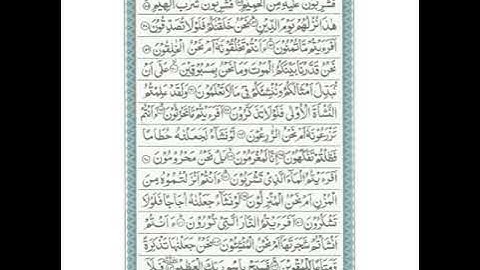 فَشٰرِبُوْنَ عَلَيْهِ مِنَ الْحَمِيْمِ ۝ فَشٰرِبُوْنَ شُرْبَ الْهِيْمِ ۝
هٰذَا نُزُلُهُمْ يَوْمَ الدِّيْنِ ۝ نَحْنُ خَلَقْنٰكُمْ فَلَوْلَا تُصَدِّقُوْنَ ۝
اَفَرَءَيْتُمْ مَّا تُمْنُوْنَ ۝ ءَاَنْتُمْ تَخْلُقُوْنَهٗٓ اَمْ نَحْنُ الْخٰلِقُوْنَ ۝
نَحْنُ قَدَّرْنَا بَيْنَكُمُ الْمَوْتَ وَمَا نَحْنُ بِمَسْبُوْقِيْنَ ۝ عَلٰٓى اَنْ
نُّبَدِّلَ اَمْثَالَكُمْ وَنُنْشِئَكُمْ فِيْ مَا لَا تَعْلَمُوْنَ ۝ وَلَقَدْ عَلِمْتُمُ
النَّشْاَةَ الْاُوْلٰى فَلَوْلَا تَذَكَّرُوْنَ ۝ اَفَرَءَيْتُمْ مَّا تَحْرُثُوْنَ ۝ ءَاَنْتُمْ
تَزْرَعُوْنَهٗٓ اَمْ نَحْنُ الزّٰرِعُوْنَ ۝ لَوْ نَشَآءُ لَجَعَلْنٰهُ حُطَامًا
فَظَلْتُمْ تَفَكَّهُوْنَ ۝ اِنَّا لَمُغْرَمُوْنَ ۝ بَلْ نَحْنُ مَحْرُوْمُوْنَ ۝
اَفَرَءَيْتُمُ الْمَآءَ الَّذِيْ تَشْرَبُوْنَ ۝ ءَاَنْتُمْ اَنْزَلْتُمُوْهُ مِنَ
الْمُزْنِ اَمْ نَحْنُ الْمُنْزِلُوْنَ ۝ لَوْ نَشَآءُ جَعَلْنٰهُ اُجَاجًا فَلَوْلَا
تَشْكُرُوْنَ ۝ اَفَرَءَيْتُمُ النَّارَ الَّتِيْ تُوْرُوْنَ ۝ ءَاَنْتُمْ
اَنْشَاْتُمْ شَجَرَتَهَآ اَمْ نَحْنُ الْمُنْشِـُٔوْنَ ۝ نَحْنُ جَعَلْنٰهَا تَذْكِرَةً
وَّمَتَاعًا لِّلْمُقْوِيْنَ ۝ فَسَبِّحْ بِاسْمِ رَبِّكَ الْعَظِيْمِ ۝ فَلَآ